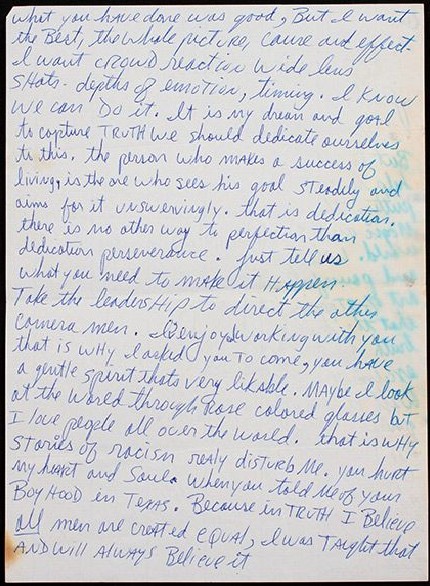 what you have done was good, But I want
the Best, the whole picture, cause and effect.
I want CROWD reaction wide lens
SHOTS - depths of emotion, timing. I KNOW
We can DO it. It is my dream and goal
to capture TRUTH we should dedicate ourselves
to this. the person who makes a success of
living, is the one who sees his goal steadily and
aims for it unswervingly. that is dedication.
there is no other way to perfection than
dedication perseverance. Just tell us
what you need to make it Happen
Take the leaderSHip to direct the other
camera men. I enjoyed working with you
that is WHY I asked you To come, you have
a gentle spirit thats very likable. MAYBe I look
at the World through Rose colored glasses but
I love people all over the world. that is WHY
stories of racism realy disturb Me. you hurt
my heart and Soul. When you told Me of your
BoyHOOD in Texas. Because in TRUTH I Believe
all men are created EQUAL, I was TAugHt that
AND will Always Believe it